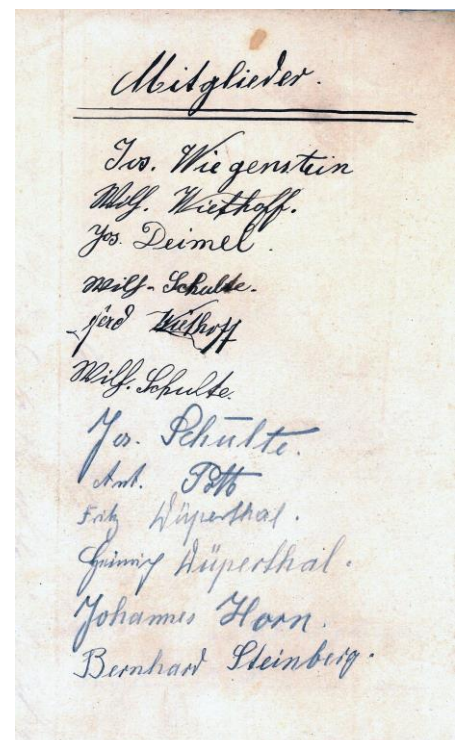 Mitglieder.
Jos. Wiegenstein
Wilh. Wiethoff.
Jos. Deimel.
Wilh. Schulte.
Wiethoff
Wilh. Schulte.
Jos. Schulte.
Ant.
Fritz Düperthal.
Heinrich Düperthal.
Johannes Horn.
Bernhard Steinberg.